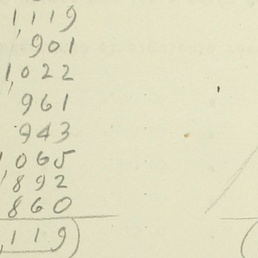 1119
901
1022
961
943
1065
892
860
,119